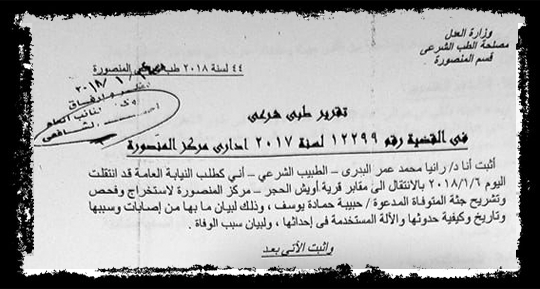 وزارة العدل
مصلحة الطب الشرعى
قسم المنصورة
٤٤ لسنة ٢٠١٨ طب المنصورة
تقرير طبى شرعى
فى القضية رقم ١٢٢٩٩ لسنة ٢٠١٧ ادارى مركز المنصورة
أثبت أنا د/ رانيا محمد عمر البدرى – الطبيب الشرعي – أني كطلب النيابة العامة قد انتقلت
اليوم ٢٠١٨/١/٦ بالانتقال الى مقابر قرية أويش الحجر – مركز المنصورة لاستخراج وفحص
وتشريح جثة المتوفاة المدعوة / حبيبة حمادة يوسف ، وذلك لبيان ما بها من إصابات وسببها
وتاريخ وكيفية حدوثها والآلة المستخدمة فى إحداثها ، ولبيان سبب الوفاة .
واثبت الأتى بعد